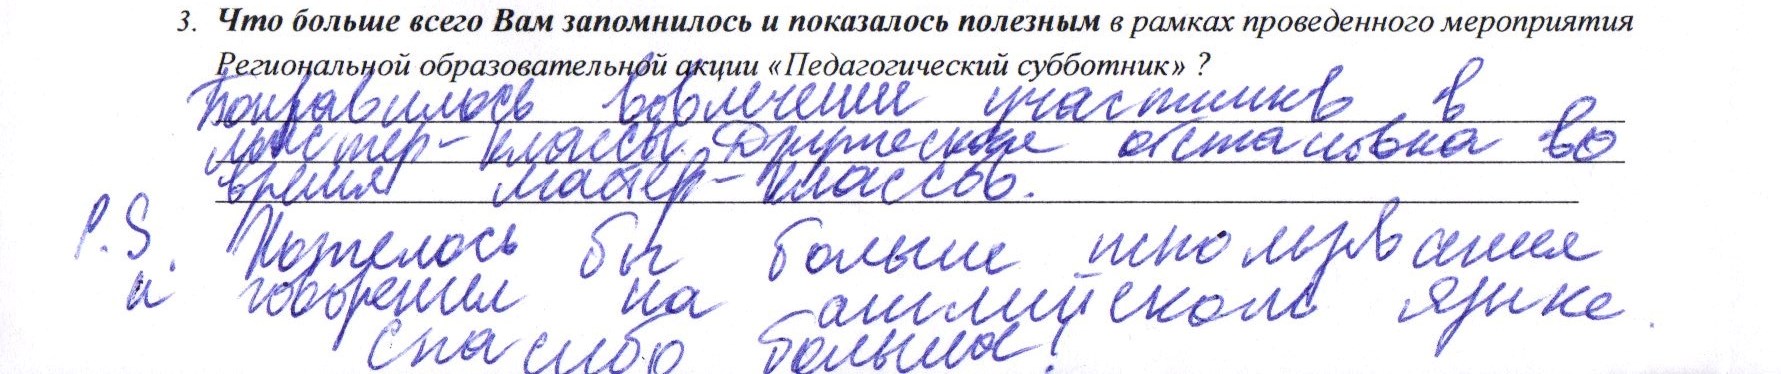 3. Что больше всего Вам запомнилось и показалось полезным в рамках проведенного мероприятия
Региональной образовательной акции «Педагогический субботник» ?
Понравилось вовлечение участников в
мастер-классы. Дружеская обстановка во
время мастер-классов.
P.S. Хотелось бы больше использования
и говорения на английском языке.
Спасибо большое!